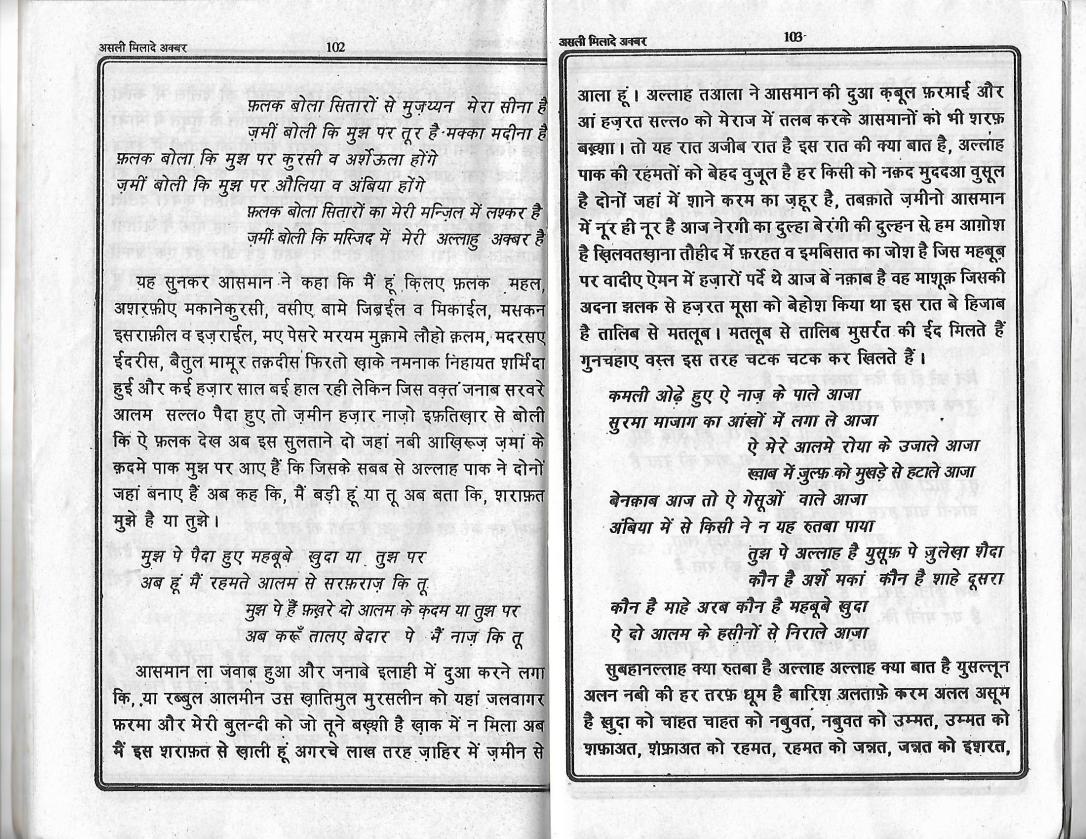 असली मिलादे अक्बर 102
फ़लक बोला सितारों से मुज़य्यन मेरा सीना है
ज़मीं बोली कि मुझ पर तूर है मक्का मदीना है
फ़लक बोला कि मुझ पर कुरसी व अर्शेऊला होंगे
ज़मीं बोली कि मुझ पर औलिया व अंबिया होंगे
फ़लक बोला सितारों का मेरी मन्ज़िल में लश्कर है
ज़मीं बोली कि मस्जिद में मेरी अल्लाहु अक्बर है
यह सुनकर आसमान ने कहा कि मैं हूं क़िलए फ़लक महल,
अशरफ़ीए मकानेकुरसी, वसीए बामे जिब्रईल व मिकाईल, मसकन
इसराफ़ील व इज़राईल, मए पेसरे मरयम मुक़ामे लौहो क़लम, मदरसए
ईदरीस, बैतुल मामूर तक़दीस फिरतो ख़ाके नमनाक निहायत शर्मिंदा
हुई और कई हज़ार साल बई हाल रही लेकिन जिस वक़्त जनाब सरवरे
आलम सल्ल० पैदा हुए तो ज़मीन हज़ार नाज़ो इफ़तिख़ार से बोली
कि ऐ फ़लक देख अब इस सुलताने दो जहां नबी आख़िरूज़ ज़मां के
क़दमे पाक मुझ पर आए हैं कि जिसके सबब से अल्लाह पाक ने दोनों
जहां बनाए हैं अब कह कि, मैं बड़ी हूं या तू अब बता कि, शराफ़त
मुझे है या तुझे।
मुझ पे पैदा हुए महबूबे खुदा या तुझ पर
अब हूं मैं रहमते आलम से सरफ़राज़ कि तू
मुझ पे हैं फ़ख़रे दो आलम के क़दम या तुझ पर
अब करूँ तालए बेदार पे मैं नाज़ कि तू
आसमान ला जवाब हुआ और जनाबे इलाही में दुआ करने लगा
कि, या रब्बुल आलमीन उस ख़ातिमुल मुरसलीन को यहां जलवागर
फ़रमा और मेरी बुलन्दी को जो तूने बख़्शी है ख़ाक में न मिला अब
मैं इस शराफ़त से ख़ाली हूं अगरचे लाख तरह ज़ाहिर में ज़मीन से
असली मिलादे अक्बर 103
आला हूं। अल्लाह तआला ने आसमान की दुआ क़बूल फ़रमाई और
आं हज़रत सल्ल० को मेराज में तलब करके आसमानों को भी शरफ़
बख़्शा। तो यह रात अजीब रात है इस रात की क्या बात है, अल्लाह
पाक की रहमतों को बेहद वुजूल है हर किसी को नक़द मुददआ वुसूल
है दोनों जहां में शाने करम का ज़हूर है, तबक़ाते ज़मीनो आसमान
में नूर ही नूर है आज नेरगी का दुल्हा बेरंगी की दुल्हन से, हम आग़ोश
है ख़िलवतख़ाना तौहीद में फ़रहत व इमबिसात का जोश है जिस महबूब
पर वादीए ऐमन में हज़ारों पर्दे थे आज बे नक़ाब है वह माशूक़ जिसकी
अदना झलक से हज़रत मूसा को बेहोश किया था इस रात बे हिजाब
है तालिब से मतलूब। मतलूब से तालिब मुसर्रत की ईद मिलते हैं
गुनचहाए वस्ल इस तरह चटक चटक कर खिलते हैं।
कमली ओढ़े हुए ऐ नाज़ के पाले आजा
सुरमा माजाग का आंखों में लगा ले आजा
ऐ मेरे आलमे रोया के उजाले आजा
ख़्वाब में ज़ुल्फ़ को मुखड़े से हटाले आजा
बेनक़ाब आज तो ऐ गेसूओं वाले आजा
अंबिया में से किसी ने न यह रुतबा पाया
तुझ पे अल्लाह है युसूफ़ पे ज़ुलेख़ा शैदा
कौन है अर्शे मकां कौन है शाहे दूसरा
कौन है माहे अरब कौन है महबूबे खुदा
ऐ दो आलम के हसीनों से निराले आजा
सुबहानल्लाह क्या रुतबा है अल्लाह अल्लाह क्या बात है युसल्लून
अलन नबी की हर तरफ़ धूम है बारिश अलताफ़े करम अलल असूम
है ख़ुदा को चाहत चाहत को नबुवत, नबुवत को उम्मत, उम्मत को
शफ़ाअत, शफ़ाअत को रहमत, रहमत को जन्नत, जन्नत को इशरत,